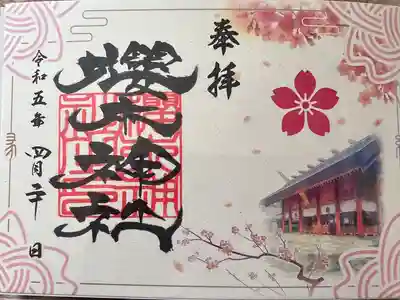 奉拝
櫻木神社
令和五年 四月二十 日